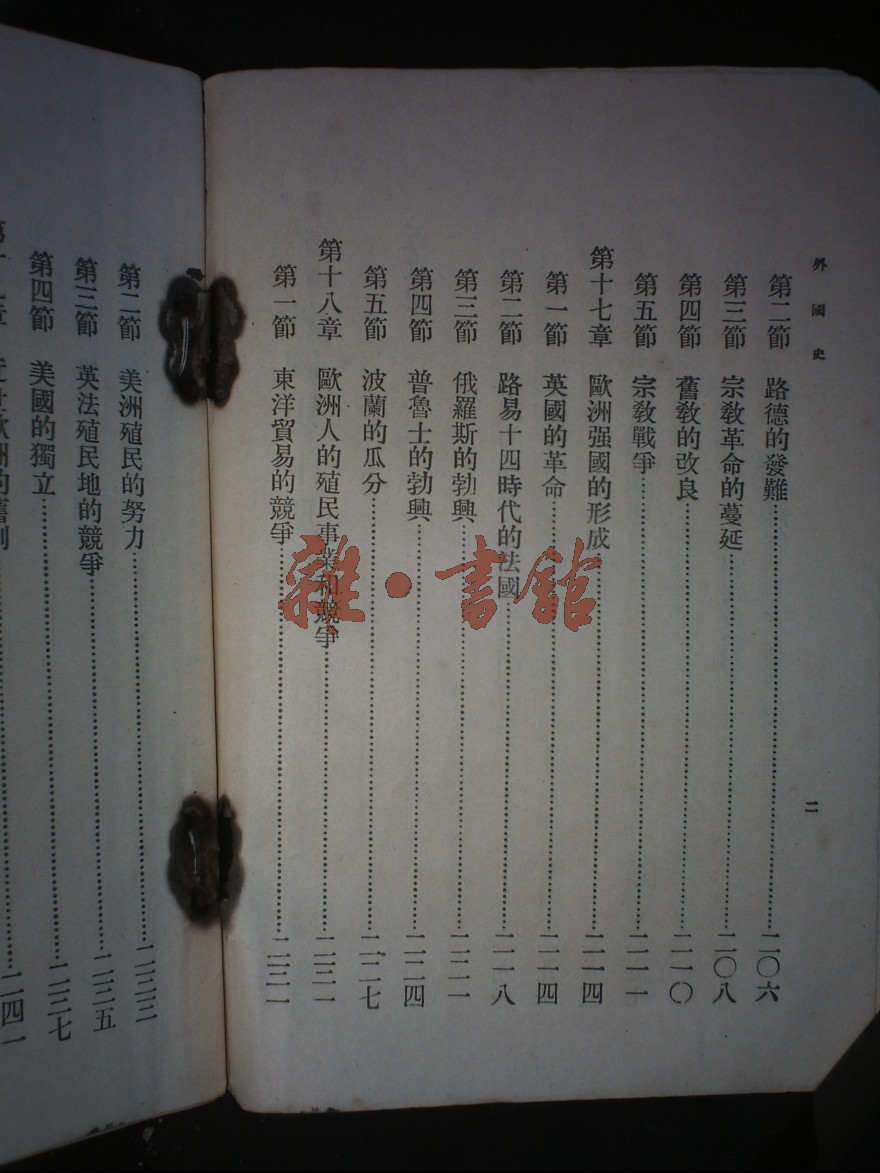 外國史
二
第二節 路德的發難……二〇六
第三節 宗教革命的蔓延……二〇八
第四節 舊教的改良……二一〇
第五節 宗教戰爭……二一一
第十七章 歐洲强國的形成……二一四
第一節 英國的革命……二一四
第二節 路易十四時代的法國……二一八
第三節 俄羅斯的勃興……二二一
第四節 普魯士的勃興……二二四
第五節 波蘭的瓜分……二二七
第十八章 歐洲人的殖民事業和競爭……二三一
第一節 東洋貿易的競爭……二三一
第二節 美洲殖民的努力……二三三
第三節 英法殖民地的競爭……二三五
第四節 美國的獨立……二三七
二四一
雜·書館